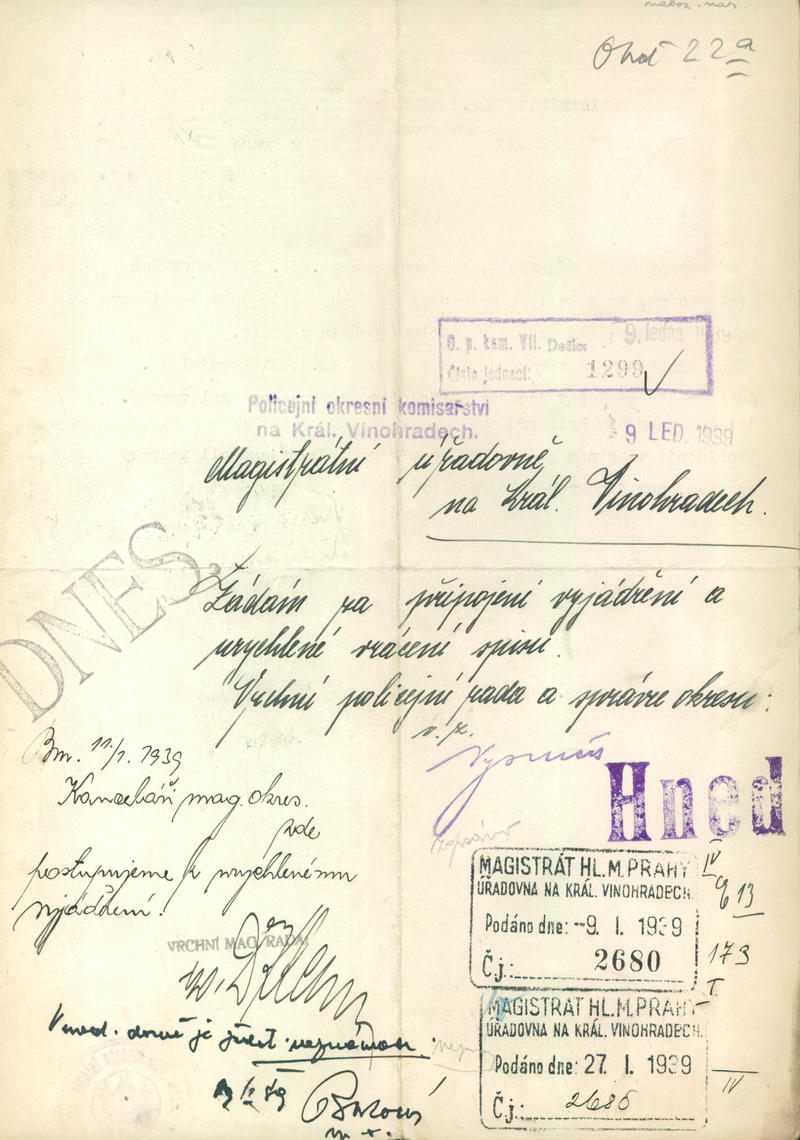 nábož. nár.
22a
O. p. kom. VII. Došlo: 9. ledna 1939
Číslo jednací: 1299
Policejní okresní komisařství
na Král. Vinohradech.
9 LED. 1939
Magistrátní úřadovně
na Král. Vinohradech.
DNES
Žádám za připojení vyjádření a
urychlené vrácení spisů.
Vrchní policejní rada a správce okresu:
v. z.
11/1. 1939
Kancelář mag. okres.
zde
postupujeme k urychlenému
vyjádření.
Hned
MAGISTRÁT HL. M. PRAHY
ÚŘADOVNA NA KRÁL. VINOHRADECH.
Podáno dne: -9. I. 1939
Čj.: 2680
IV
13
173
I
VRCHNÍ MAG. RADA:
MAGISTRÁT HL. M. PRAHY
ÚŘADOVNA NA KRÁL. VINOHRADECH.
Podáno dne: 27. I. 1939
Čj.: 2685
IV
V uved. domě je